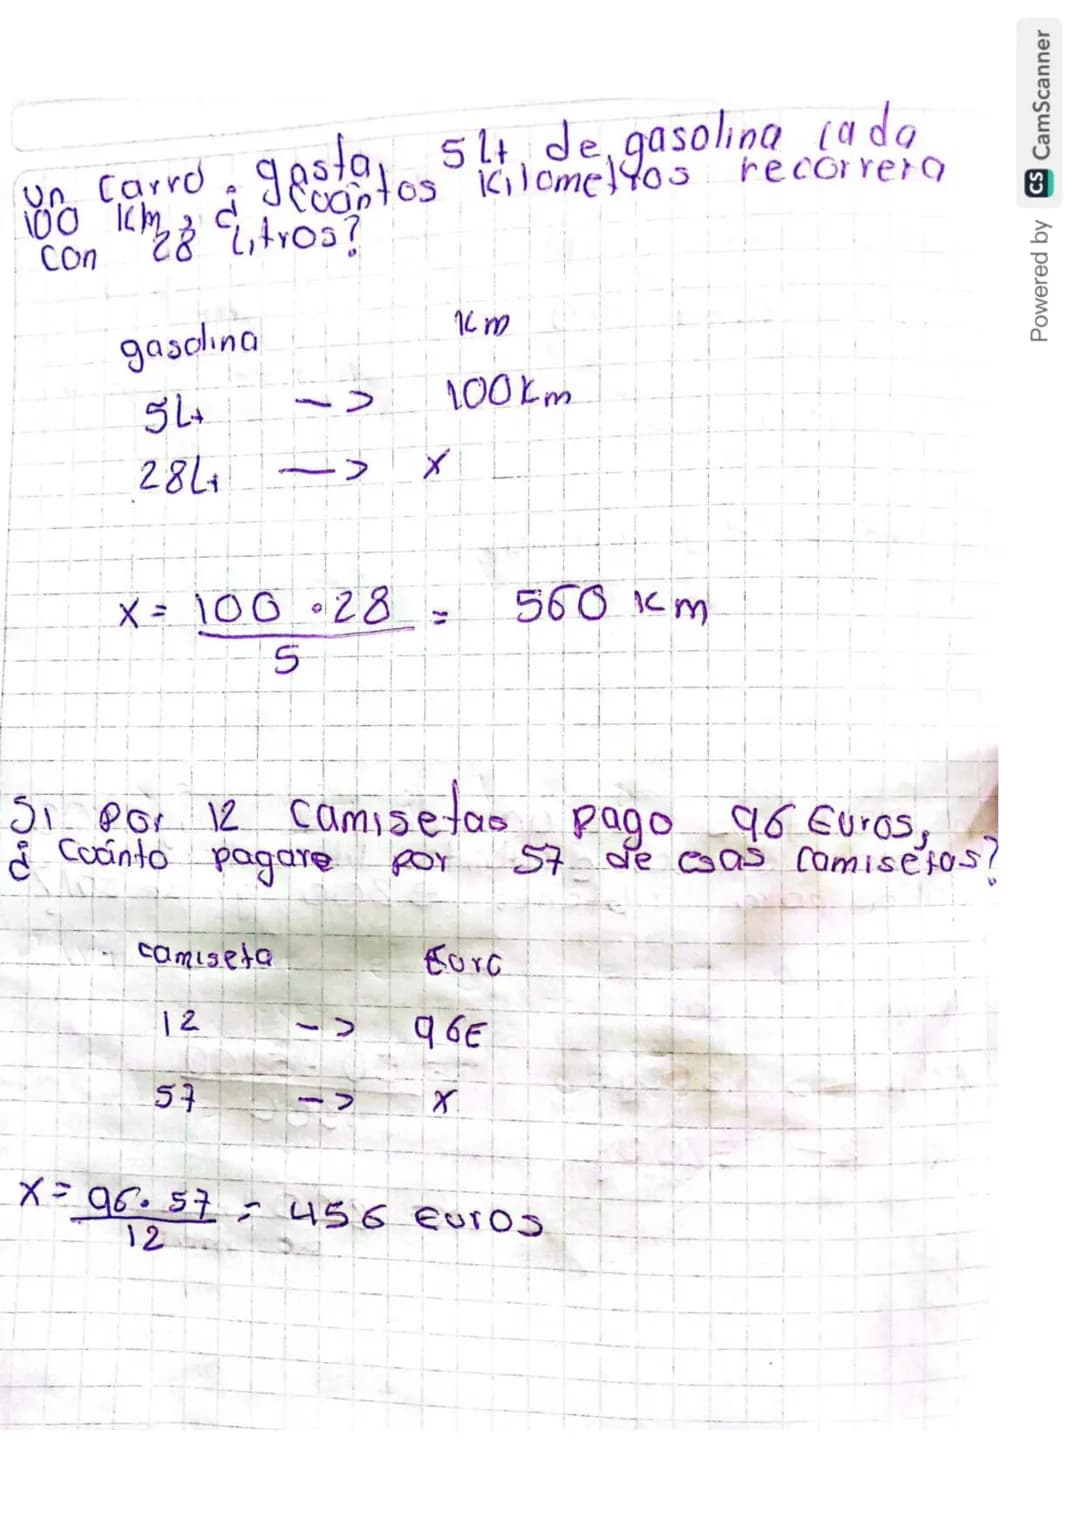 Un carro gasta 5Lt de gasolina cada
100 Km, ¿Cuántos Kilometros recorrera
con 28 Litros?
gasolina Km
5Lt -> 100Km
28Lt -> x
x = 100 · 28 = 560 Km
5
Si por 12 camisetas pago 96 Euros,
¿Cuánto pagare por 57 de esas camisetas?
camiseta Euro
12 -> 96€
57 -> x
x = 96 · 57 = 456 Euros
12
Powered by CS CamScanner